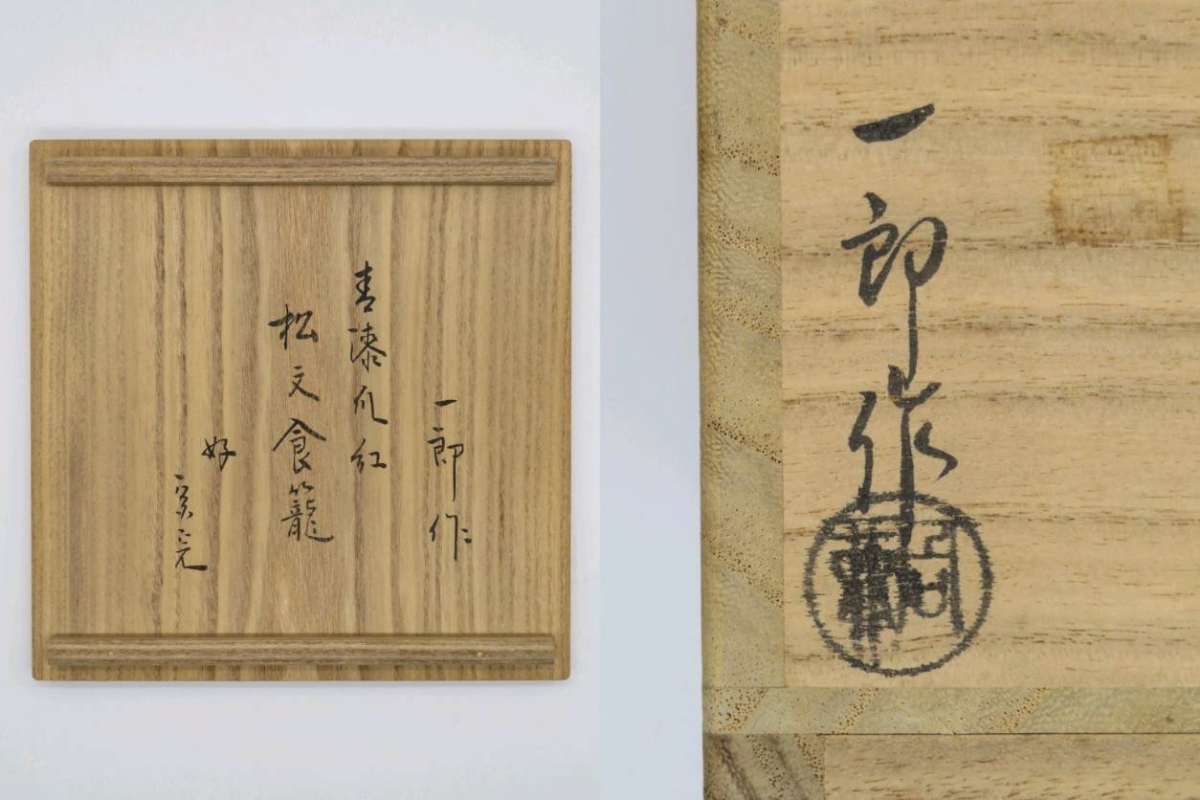 一郎作
青漆爪紅
松文食籠
好
宗完
一郎作